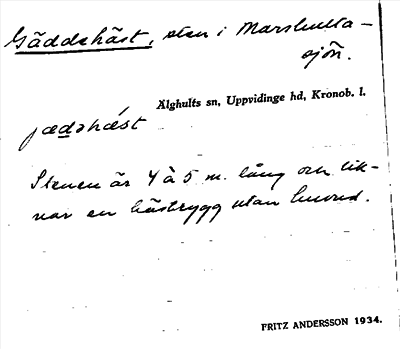 Gäddehäst, sten i Marshulta-
sjön.
Älghults sn, Uppvidinge hd, Kronob. l.
jædəhǽst
Stenen är 4 à 5 m. lång och lik-
nar en hästrygg utan huvud.
FRITZ ANDERSSON 1934.